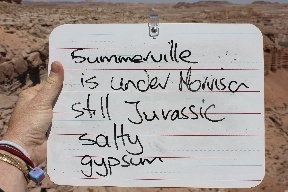 Summerville
is under Morrison
still Jurassic
salty
gypsum